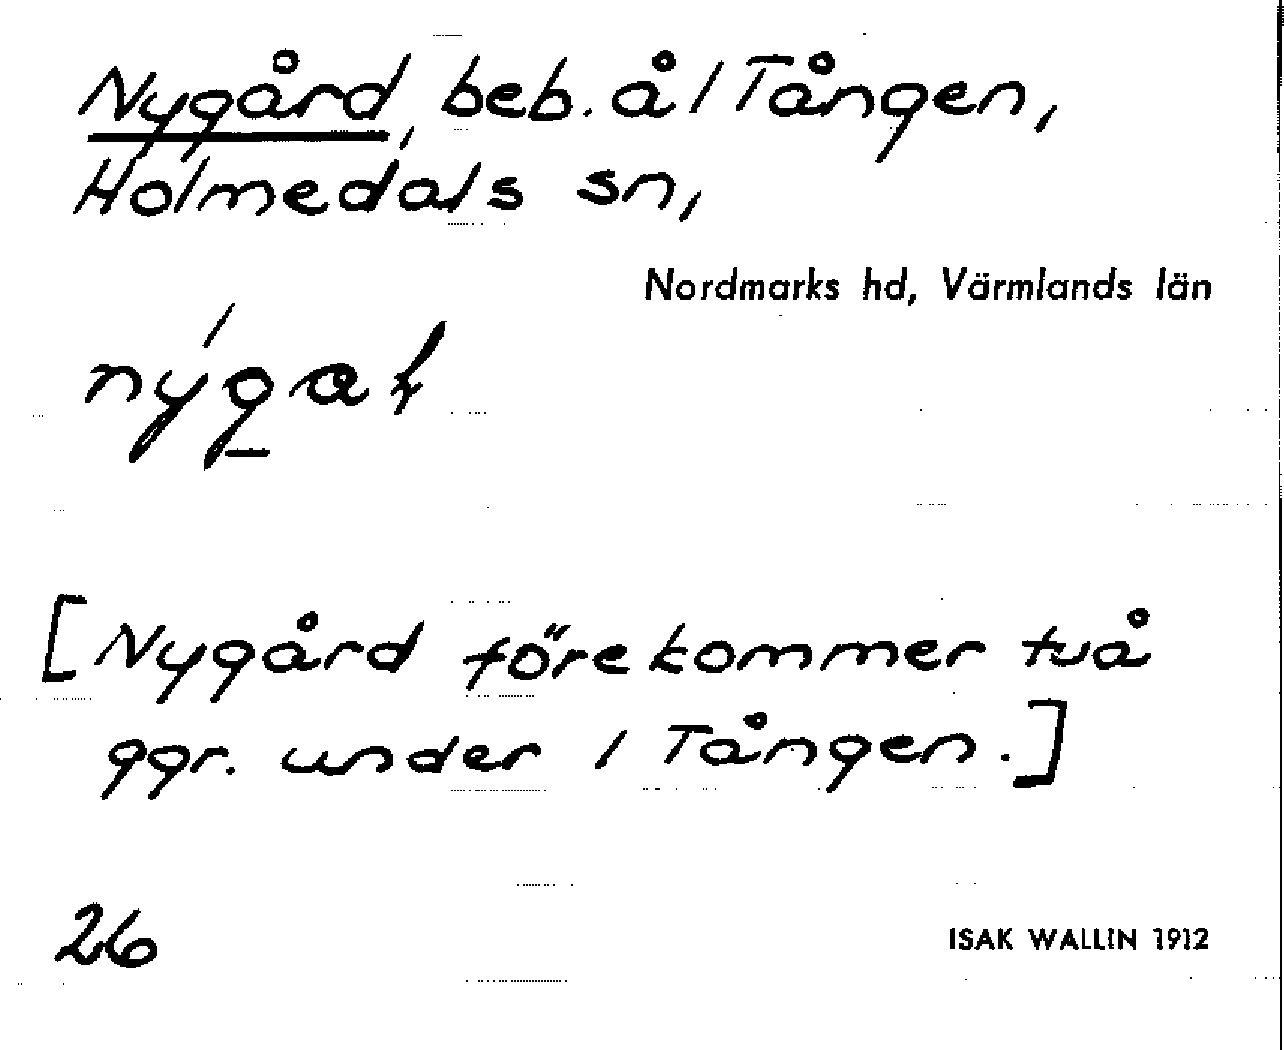 Nygård, beb. å 1 Tången,
Holmedals sn,
Nordmarks hd, Värmlands län
[Nygård förekommer två
ggr. under 1 Tången.]
26
ISAK WALLIN 1912